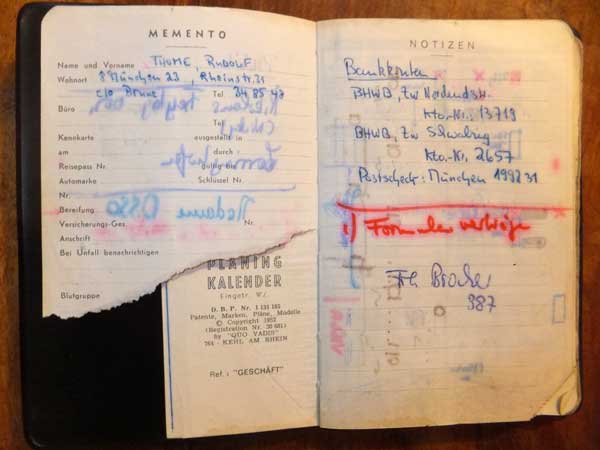 MEMENTO
Name und Vorname THOME, RUDOLF
Wohnort 8 München 23, Rheinstr. 31
c/o Brune Tel 34 85 47
Büro
Tel
Kennkarte ausgestellt in
am durch:
Reisepass Nr. gültig bis
Automarke Schlüssel Nr.
Nr.
Bereifung
Versicherungs-Ges. Nr.
Anschrift
Bei Unfall benachrichtigen
Blutgruppe
PLANING
KALENDER
Eingetr. Wz.
D.B.P. Nr. 1 131 185
Patente, Marken, Pläne, Modelle
© Copyright 1952
(Registration Nr. 20 681)
by "QUO VADIS"
764 - KEHL AM RHEIN
Ref.: "GESCHÄFT"
NOTIZEN
Bankkonten
BHWB, Zw
Kto.-Nr.: 13719
BHWB, Zw
Kto.-Nr. 2657
Postscheck: München 1992 31
1)
Frl.
387